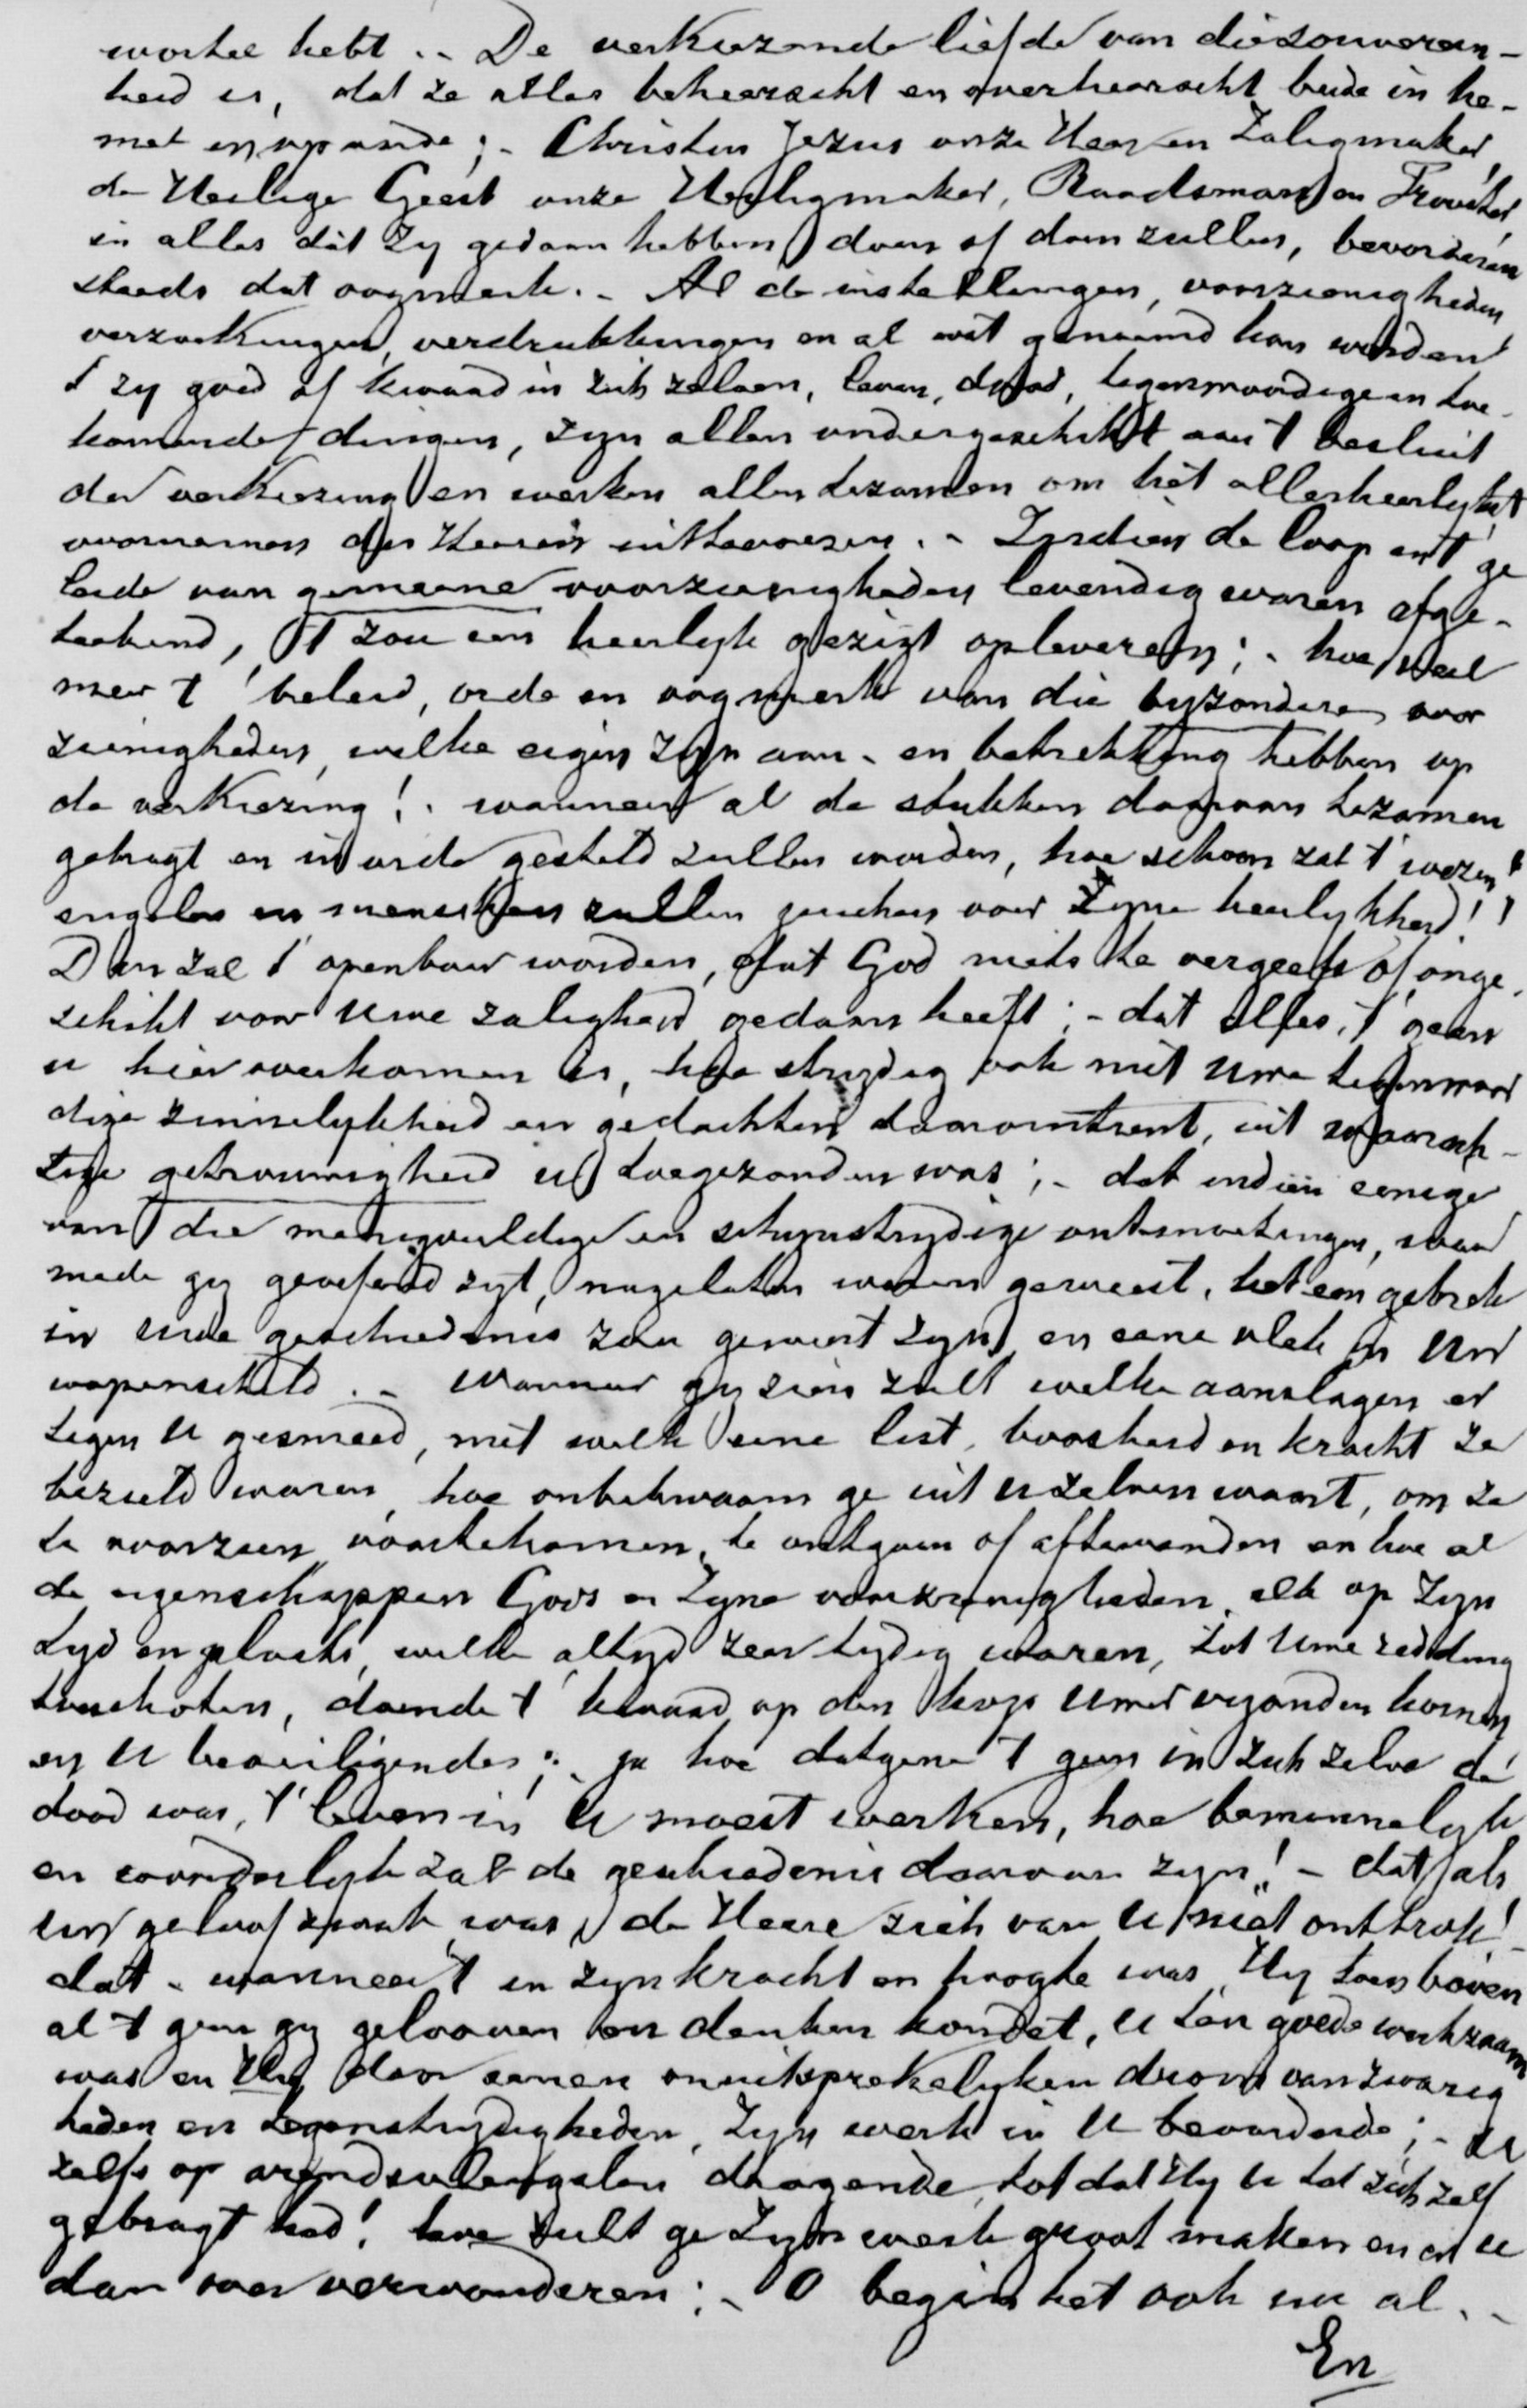 wortel hebt .. De verkiezende liefde van die souverein-
heid is, dat ze alles beheerscht en overheerscht beide in he-
mel en op aarde ;- Christus Jezus onze Heer en Zaligmaker,
de Heilige Geest onze Heyligmaker, Raadsman en Trooster,
in alles dat zy gedaan hebben doen of doen zullen, bevorderen
steeds dat oogmerk .- Al de instellingen, voorzienigheden
verzoekingen, verdrukkingen en al wat genoemd kan worden
't zy goed of kwaad in zich zelven, leven, dood, tegenwoordige en toe-
komende dingen, zyn allen ondergeschikt aan 't besluit
der verkiezing en werken allen tezamen om het allerheerlykst
voornemen des Heeren uittevoeren .- Indien de loop en 't ge
leide van gemeene voorzienigheden levendig waren afge-
teekend, 't zou een heerlyk gezigt opleveren ;- hoe veel
meer 't beleid, orde en oogmerk van die byzondere voor
zienigheden, welke eigen zyn aan - en betrekking hebben op
de verkiezing !. wanneer al de stukken daarvan tezamen
gebragt en in orde gesteld zullen worden, hoe schoon zal 't wezen !
engelen en menschen zullen juichen over Zyne heerlykheid ! !
Dan zal 't openbaar worden, dat God niets te vergeefs of onge-
schikt voor Uwe zaligheid gedaan heeft ;- dat alles, 't geen
u hier overkomen is, hoe strydig ook met Uwe tegenwoor
dige zinnelykheid en gedachten daaromtrent, uit
getrouwigheid u toegezonden was ;- dat indien eenige
van die menigvuldige en schynstrydige ontmoetingen, waar
mede gy geoefend zyt, nagelaten waren geweest, het een gebrek
in Uwe geschiedenis zou geweest zyn en eene vlek in Uw
wapenschild .- Wanneer gy zien zult welke aanslagen er
tegen U gesmeed, met welk eene list, boosheid en kracht ze
bezield waren, hoe onbekwaam ge uit u zelven waart, om ze
te voorzien, voortekomen, te ontgaan of aftewenden en hoe al
de eigenschappen Gods en Zyne voorzienigheden, elk op Zyn
tyd en plaats, welke altyd zeer tydig waren, tot Uwe redding
toeschoten, doende 't kwaad op den kop Uwer vyanden komen
en U beveiligende ;- ja hoe datgene 't geen in zich zelve de
dood was, 't leven in U moest werken, hoe beminnelyk
en wonderlyk zal de geschiedenis daarvan zyn ! - dat, als
uw geloof zwak was, de Heere zich van U niet onttrok !
dat - wanneer 't in zyn kracht en hoogte was, Hy toen boven
al 't geen gy gelooven en denken kondet, U ten goede werkzaam
was en Hy door eenen onuitsprekelyken drom van zwarig
heden en tegenstrydigheden, Zyn werk in U bevorderde ;- U
zelfs op arendsvleugelen dragende, tot dat Hy U tot zich zelf
gebragt had ! hoe zult ge Zyn werk groot maken en er u
dan over verwonderen ;- O begin het ook nu al .-
En